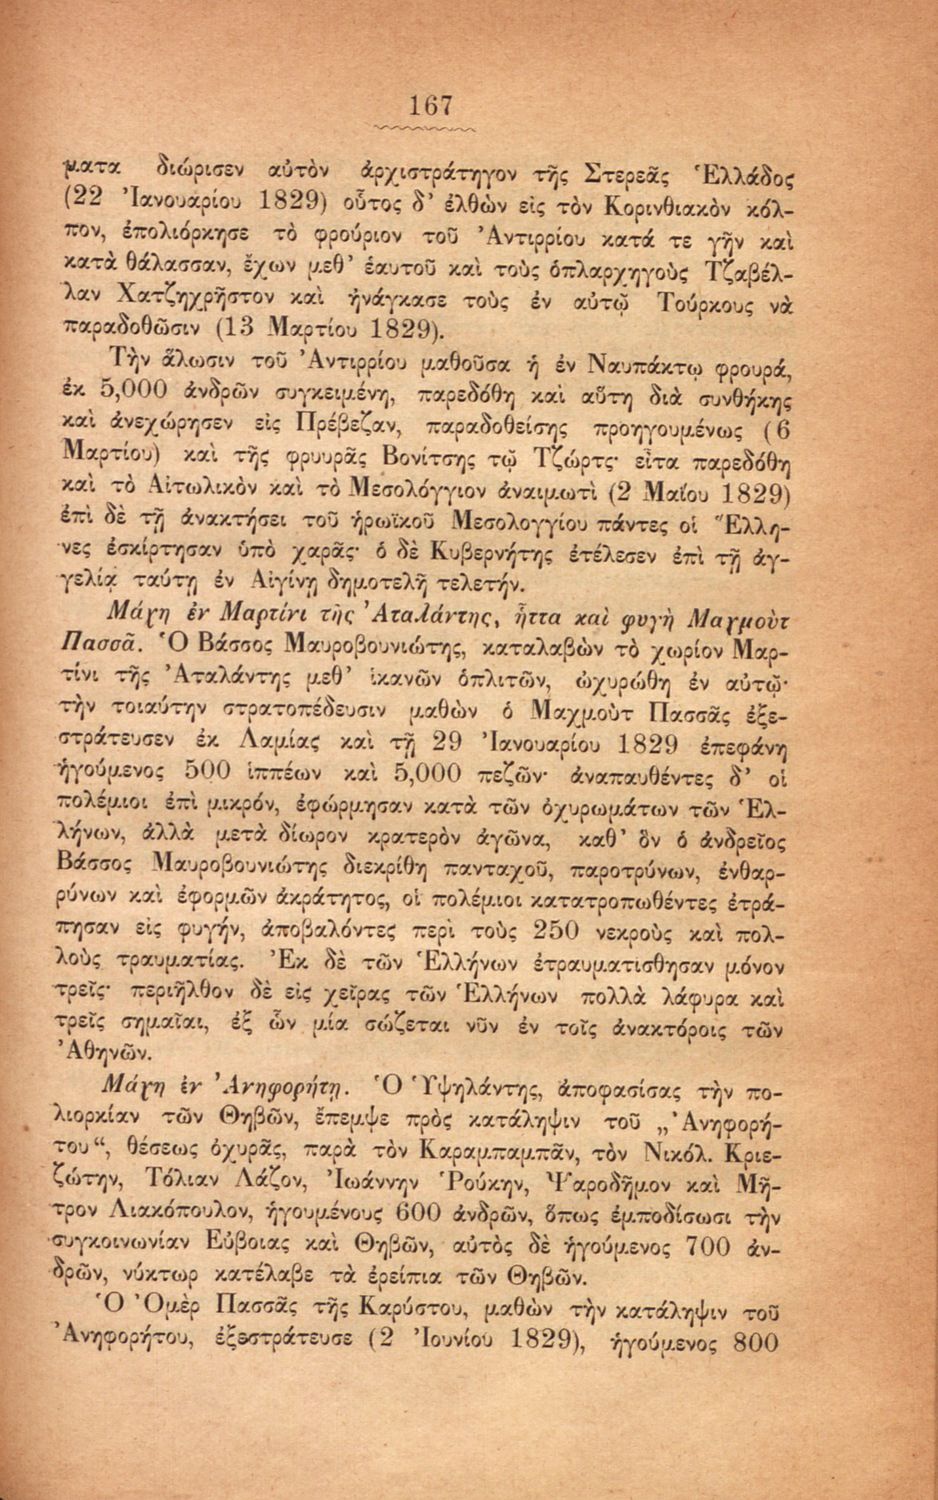 167
ματα διώρισεν αὐτὸν ἀρχιστράτηγον τῆς Στερεᾶς Ἑλλάδος
(22 Ἰανουαρίου 1829) οὗτος δ’ ἐλθὼν εἰς τὸν Κορινθιακὸν κόλ-
πον, ἐπολιόρκησε τὸ φρούριον τοῦ Ἀντιρρίου κατά τε γῆν καὶ
κατὰ θάλασσαν, ἔχων μεθ’ ἑαυτοῦ καὶ τοὺς ὁπλαρχηγοὺς Τζαβέλ-
λαν Χατζηχρῆστον καὶ ἠνάγκασε τοὺς ἐν αὐτῷ Τούρκους νὰ
παραδοθῶσιν (13 Μαρτίου 1829).
Τὴν ἅλωσιν τοῦ Ἀντιρρίου μαθοῦσα ἡ ἐν Ναυπάκτῳ φρουρά,
ἐκ 5,000 ἀνδρῶν συγκειμένη, παρεδόθη καὶ αὕτη διὰ συνθήκης
καὶ ἀνεχώρησεν εἰς Πρέβεζαν, παραδοθείσης προηγουμένως (6
Μαρτίου) καὶ τῆς φρυυρᾶς Βονίτσης τῷ Τζώρτς· εἶτα παρεδόθη
καὶ τὸ Αἰτωλικὸν καὶ τὸ Μεσολόγγιον ἀναιμωτὶ (2 Μαΐου 1829)
ἐπὶ δὲ τῇ ἀνακτήσει τοῦ ἡρωϊκοῦ Μεσολογγίου πάντες οἱ Ἕλλη-
νες ἐσκίρτησαν ὑπὸ χαρᾶς· ὁ δὲ Κυβερνήτης ἐτέλεσεν ἐπὶ τῇ ἀγ-
γελίᾳ ταύτῃ ἐν Αἰγίνῃ δημοτελῆ τελετήν.
Μάχη ἐν Μαρτίνι τῆς Ἀταλάντης, ἧττα καὶ φυγὴ Μαχμοὺτ
Πασσᾶ. Ὁ Βάσσος Μαυροβουνιώτης, καταλαβὼν τὸ χωρίον Μαρ-
τίνι τῆς Ἀταλάντης μεθ’ ἱκανῶν ὁπλιτῶν, ὠχυρώθη ἐν αὐτῷ·
τὴν τοιαύτην στρατοπέδευσιν μαθὼν ὁ Μαχμοὺτ Πασσᾶς ἐξε-
στράτευσεν ἐκ Λαμίας καὶ τῇ 29 Ἰανουαρίου 1829 ἐπεφάνη
ἡγούμενος 500 ἱππέων καὶ 5,000 πεζῶν· ἀναπαυθέντες δ’ οἱ
πολέμιοι ἐπὶ μικρόν, ἐφώρμησαν κατὰ τῶν ὀχυρωμάτων τῶν Ἑλ-
λήνων, ἀλλὰ μετὰ δίωρον κρατερὸν ἀγῶνα, καθ’ ὃν ὁ ἀνδρεῖος
Βάσσος Μαυροβουνιώτης διεκρίθη πανταχοῦ, παροτρύνων, ἐνθαρ-
ρύνων καὶ ἐφορμῶν ἀκράτητος, οἱ πολέμιοι κατατροπωθέντες ἐτρά-
πησαν εἰς φυγήν, ἀποβαλόντες περὶ τοὺς 250 νεκροὺς καὶ πολ-
λοὺς τραυματίας. Ἐκ δὲ τῶν Ἑλλήνων ἐτραυματίσθησαν μόνον
τρεῖς· περιῆλθον δὲ εἰς χεῖρας τῶν Ἑλλήνων πολλὰ λάφυρα καὶ
τρεῖς σημαῖαι, ἐξ ὧν μία σώζεται νῦν ἐν τοῖς ἀνακτόροις τῶν
Ἀθηνῶν.
Μάχη ἐν Ἀνηφορήτῃ. Ὁ Ὑψηλάντης, ἀποφασίσας τὴν πο-
λιορκίαν τῶν Θηβῶν, ἔπεμψε πρὸς κατάληψιν τοῦ „Ἀνηφορή-
του“, θέσεως ὀχυρᾶς, παρὰ τὸν Καραμπαμπᾶν, τὸν Νικόλ. Κριε-
ζώτην, Τόλιαν Λάζον, Ἰωάννην Ῥούκην, Ψαροδῆμον καὶ Μῆ-
τρον Λιακόπουλον, ἡγουμένους 600 ἀνδρῶν, ὅπως ἐμποδίσωσι τὴν
συγκοινωνίαν Εὐβοιας καὶ Θηβῶν, αὐτὸς δὲ ἡγούμενος 700 ἀν-
δρῶν, νύκτωρ κατέλαβε τὰ ἐρείπια τῶν Θηβῶν.
Ὁ Ὀμὲρ Πασσᾶς τῆς Καρύστου, μαθὼν τὴν κατάληψιν τοῦ
Ἀνηφορήτου, ἐξεστράτευσε (2 Ἰουνίου 1829), ἡγούμενος 800